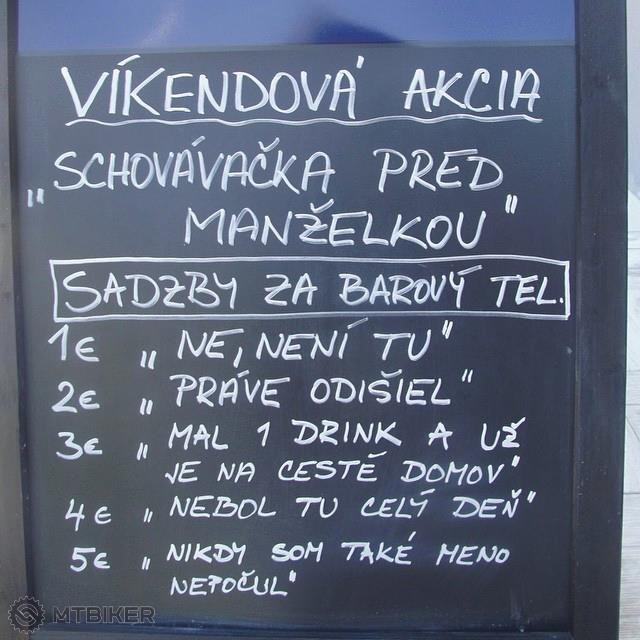 VÍKENDOVÁ AKCIA
„SCHOVÁVAČKA PRED
MANŽELKOU"
SADZBY ZA BAROVÝ TEL.
1€ „NE, NENÍ TU"
2€ „PRÁVE ODIŠIEL"
3€ „MAL 1 DRINK A UŽ
JE NA CESTĚ DOMOV"
4€ „NEBOL TU CELÝ DEŇ"
5€ „NIKDY SOM TAKÉ MENO
NEPOČUL"
MTBIKER